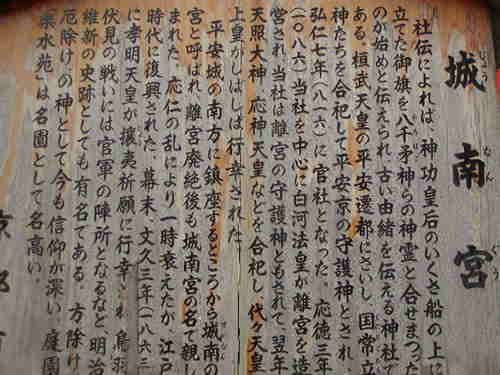 城南宮
じょうなんぐう
社伝によれば、神功皇后のいくさ船の上に
立てた御旗を八千矛神らの神霊と合せまつった
のが始めと伝えられ古い由緒を伝える神社で
ある。桓武天皇の平安遷都にさいし、国常立
神たちを合祀して平安京の守護神とされ、
弘仁七年(八一六)に官社となった。応徳三年
(一〇八六)当社を中心に白河法皇が離宮を造
営され、当社は離宮の守護神ともされて、翌年
天照大神、応神天皇などを合祀し、代々天皇
上皇がしばしば行幸された。
平安城の南方に鎮座するところから城南の
宮と呼ばれ、離宮廃絶後も城南宮の名で親し
まれた。応仁の乱により一時衰えたが、江戸
時代に復興された。幕末、文久三年(一八六三
に孝明天皇が攘夷祈願に行幸され、鳥羽
伏見の戦いには官軍の陣所となるなど、明治
維新の史跡としても有名である。方除け
厄除けの神として今も信仰が深い。庭園
「楽水苑」は名園として名高い。
京都